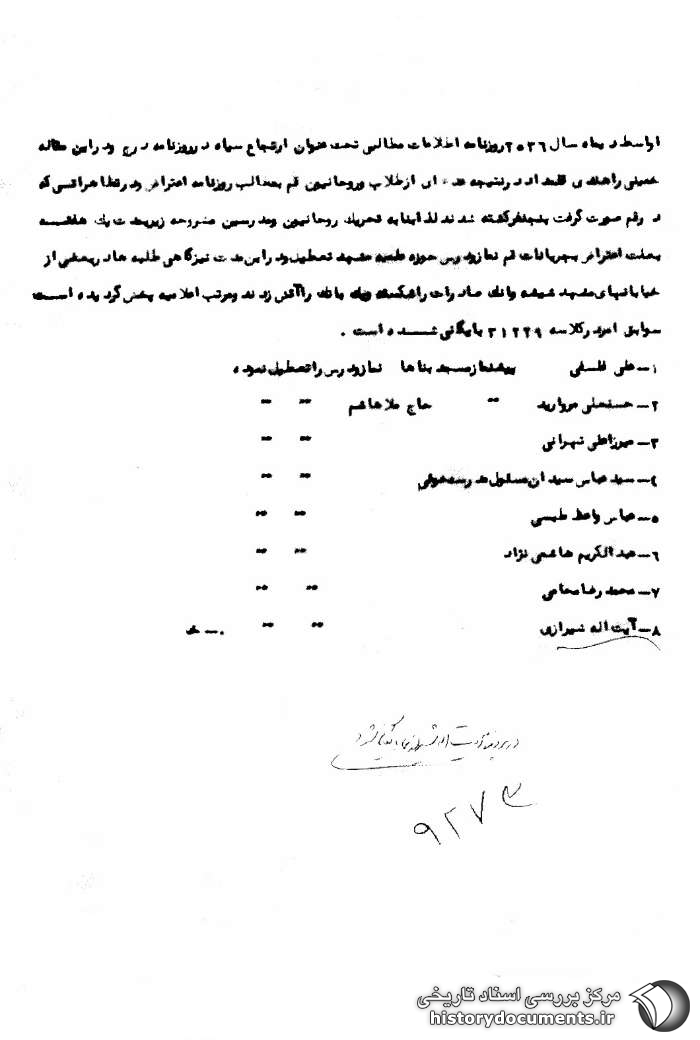 اواسط دیماه سال ۲۵۳۶ روزنامه اطلاعات مطالبی تحت عنوان ارتجاع سیاه در روزنامه درج و در این مقاله
خمینی را هندی قلمداد در نتیجه عده ای از طلاب و روحانیون قم بمطالب روزنامه اعتراض و در تظاهراتی که
در قم صورت گرفت پنجنفر کشته شدند لذا بنا به تحریک روحانیون و مدرسین مشروحه زیر بمدت یک هفتــه
بعلت اعتراض بجریانات قم نماز و درس حوزه علمیه مشهد تعطیل و در این مدت نیز گاهی طلبه ها در بعضی از
خیابانهای مشهد شیشه بانک صادرات را شکسته و یک بانک را آتش زدند و مرتب اعلامیه پخش گردیده اســت
سوابق امر در کلاسه ۳۱۲۲۹ بایگانی شــده است .
۱ــ علی فلسفی پیشنماز مسجد بناها نماز و درس را تعطیل نموده
۲ــ حسنعلی مروارید " حاج ملا هاشم " "
۳ــ میرزا علی تهرانی " "
۴ــ سید عباس سیدان مسئول مدرسه " "
۵ــ عباس واعظ طبسی " "
۶ــ عبدالکریم هاشمی نژاد " "
۷ــ محمد رضا محامی " "
۸ــ آیت اله شیرازی " " .ــ خ
۹۲۷۳
مرکز بررسی اسناد تاریخی
historydocuments.ir